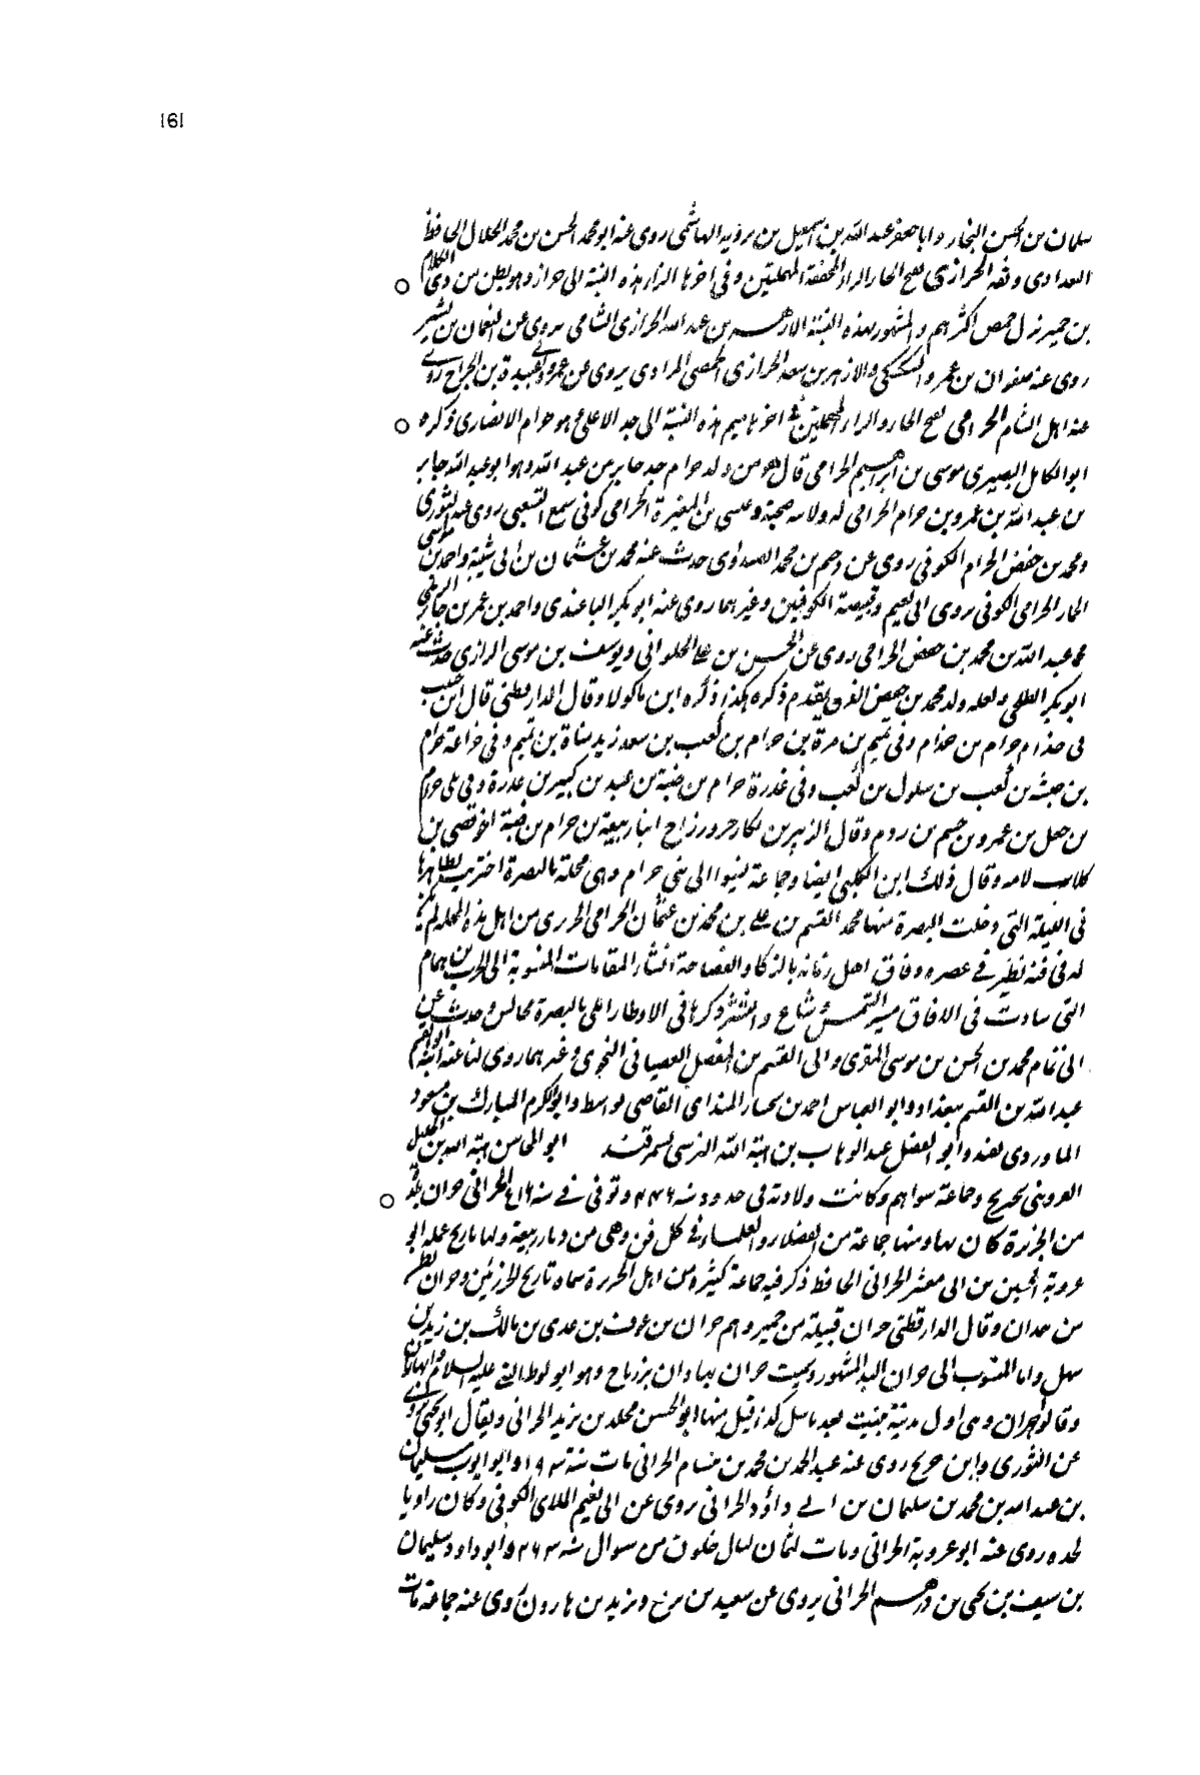 161
سلمان بن الحسن النجار وابا جعفر عبد الله بن اسمعيل بن بريه الهاشمى روى عنه ابو محمد الحسن بن محمد الخلال الحافظ
البغدادى ونفه الحرازى بفتح الحار والراء المخففة المهملتين وفى اخرها الزار هذه النسبة الى حراز وهو بطن من ذى الكلاع
بن حمير نزل حمص اكثرهم والمشهور بهذه النسبة الازهر بن عبد الله الحرازى الشامى يروى عن النعمان بن بشير
روى عنه صفوان بن عمرو السكسكى والازهر بن سعد الحرازى الحمصى المرادى يروى عن عمر وابى عبيدة بن الجراح روى
عنه اهل الشام الحرامى بفتح الحار والراء المهملتين فى اخرها ميم هذه النسبة الى جد الاعلى وهو حرام الانصارى ذكره
ابو الكامل البصيرى موسى بن ابراهيم الحرامى قال هو من ولد حرام جد جابر بن عبد الله وهو ابو عبد الله جابر
بن عبد الله بن عمرو بن حرام الحرامى له ولابيه صحبة وعيسى بن المغيرة الحرامى كوفى سمع الشعبى روى عنه الثورى
ومحمد بن حفص الحرامى الكوفى روى عن دحيم بن محمد الصيداوى حدث عنه محمد بن عثمان بن ابى شيبة واحمد بن موسى
الحمار الحرامى الكوفى يروى ابى نعيم وقبيصة الكوفيين وغيرهما روى عنه ابو بكر الباغندى واحمد بن عمر بن جابر الرملى
محمد عبد الله بن محمد بن حفص الحرامى روى عن الحسن بن على الحلوانى ويوسف بن موسى الرازى حدث عنه
ابو بكر الطلحى ولعله ولد محمد بن حفص الذى يقدم ذكره هكذا ذكره ابن ماكولا وقال الدارقطنى قال ابن حبيب
فى جذام حرام بن جذام وفى تميم بن مرة بن حرام بن كعب بن سعد زيد مناة بن تميم وفى خزاعة حرام
بن حبشة بن كعب بن سلول بن كعب وفى عذرة حرام بن ضنة بن عبد بن كبير بن عذرة وفى بلى حرام
بن جعل بن عمرو بن جسم بن ودم وقال الزبير بن بكار حر ورزاح ابنا ربيعة بن حرام بن ضنة اخو قصى بن
كلاب لامه وقال ذلك ابن الكلبى ايضا وجماعة نسبوا الى بنى حرام وهى محلة بالبصرة
التى دخلت البصرة منها محمد القسم بن على بن محمد بن عثمان الحرامى الحريرى من اهل هذه المحلة لم يكن
له فى فنه نظير فى عصره وفاق اهل زمانه بالذكاء والفصاحة انشار المقامات المنسوبة الى الحارث بن همام
التى سارت فى الافاق مسير الشمس وشاع وانتشر ذكرها فى الاوطار املى بالبصرة مجالس وحدث عن
ابى تمام محمد بن الحسن بن موسى المقرى والى القسم بن المفضل القصبانى النحوى وغيرهما روى لنا عنه ابنه ابو القسم
عبد الله بن القسم ببغداد وابو العباس احمد بن بختيار المندائى القاضى بواسط وابو الكرم المبارك بن مسعود
الماوردى وابو الفضل عبد الوهاب بن هبة الله النرسى بسمرقند ابو المحاسن هبة الله بن الخليل
القزوينى وجماعة سواهم وكانت ولادته فى حدود سنة ٤٤٦ وتوفى فى سنة ٥١٦ الحرانى حران بلدة
من الجزيرة كان بها ومنها جماعة من الفضلاء والعلماء فى كل فن وهى من ديار ربيعة ولها تاريخ عمله ابو
عروبة الحسين بن ابى معشر الحرانى الحافظ ذكر فيه جماعة كثيرة من اهل الجزيرة سماه تاريخ الجزريين وحران بطن
من همدان وقال الدارقطنى حران قبيلة من حمير وهم حران بن عوف بن عدى بن مالك بن زيد بن
سهل واما المنسوب الى حران البلد المشهور وسميت حران بهاران بن تارح وهو ابو لوط النبى عليه السلام
وقالوا حران وهى اول مدينة بنيت بعد بابل كذا قيل منها ابو الحسن مخلد بن يزيد الحرانى ويقال ابو يحيى يروى
عن الثورى وابن جريج روى عنه عبد الحميد بن محمد بن مستام الحرانى مات سنة ١٩٣ وابو ايوب سليمان
بن عبد الله بن محمد بن سليمان بن ابى داؤد الحرانى يروى عن ابى نعيم الملائى الكوفى وكان راويا
لجده روى عنه ابو عروبة الحرانى ومات لثمان ليال خلون من شوال سنة ٢٦٣ وابو داود سليمان
بن سيف بن يحيى بن درهم الحرانى يروى عن سعيد بن بزيع ويزيد بن هارون روى عنه جماعة مات